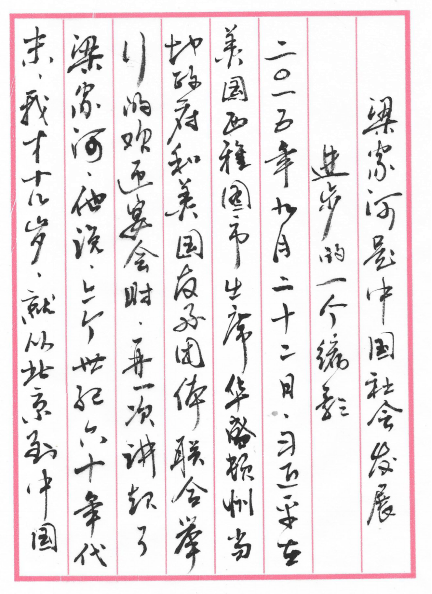 梁家河是中国社会发展
进步的一个缩影
二〇一五年九月二十二日、习近平在
美国西雅图市出席华盛顿州当
地政府和美国友好团体联合举
行的欢迎宴会时、再一次讲起了
梁家河、他说、上个世纪六十年代
末、我才十几岁、就从北京到中国